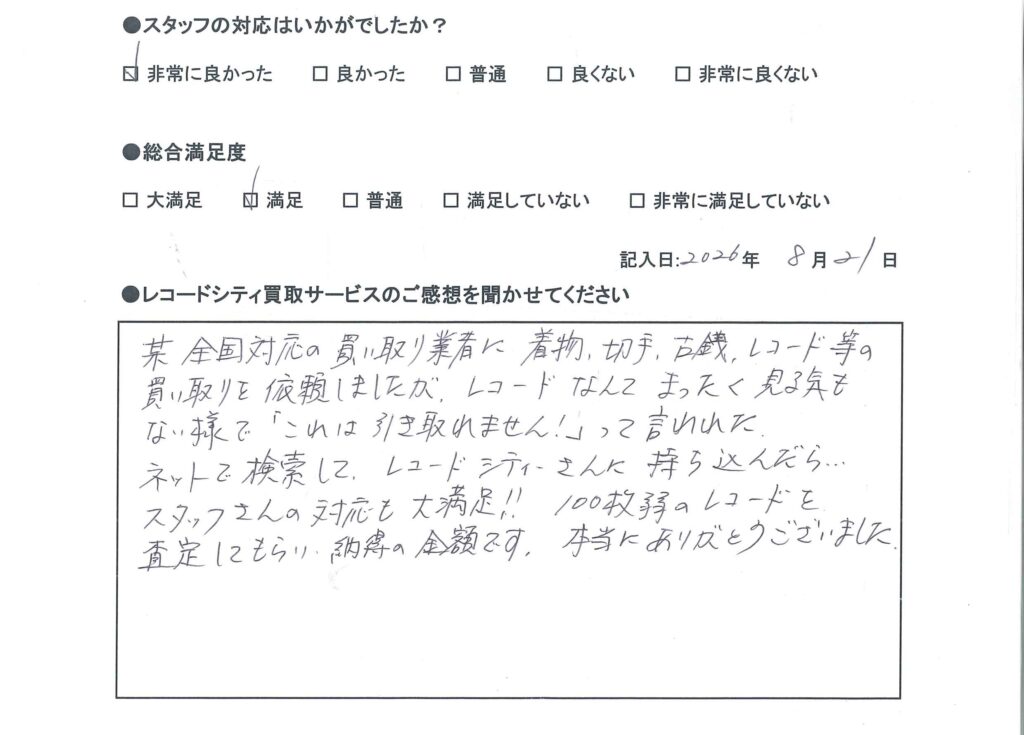 ●スタッフの対応はいかがでしたか？
☑ 非常に良かった □ 良かった □ 普通 □ 良くない □ 非常に良くない
●総合満足度
□ 大満足 ☑ 満足 □ 普通 □ 満足していない □ 非常に満足していない
記入日:2026年 8月21日
●レコードシティ買取サービスのご感想を聞かせてください
某 全国対応の買い取り業者に 着物、切手、古銭、レコード等の
買い取りを依頼しましたが、レコードなんて まったく見る気も
ない様で「これは引き取れません!」って言われた。
ネットで検索して、レコードシティーさんに持ち込んだら…
スタッフさんの対応も大満足!! 100枚弱のレコードを
査定してもらい、納得の金額です。本当にありがとうございました。